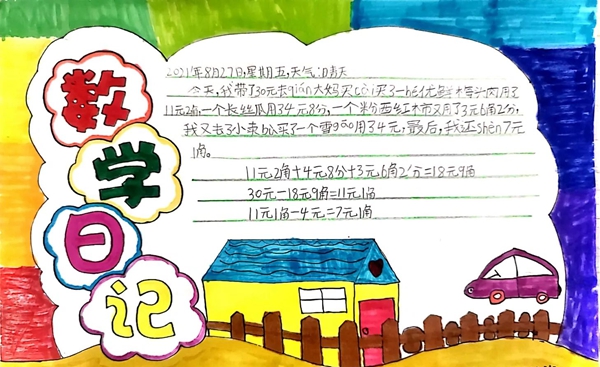 数
学
日
记
2021年8月27日,星期五,天气:晴天
今天,我带了30元去qián大妈买cài买了一hé优鲜
11元2角,一个长丝瓜用34元8分,一个粉西红柿又用了3元6角2分,
我又去了小卖bù买了一个雪gāo用34元,最后,我还shèn7元
1角。
11元2角+4元8分+3元6角2分=18元9角
30元-18元9角=11元1角
11元1角-4元=7元1角